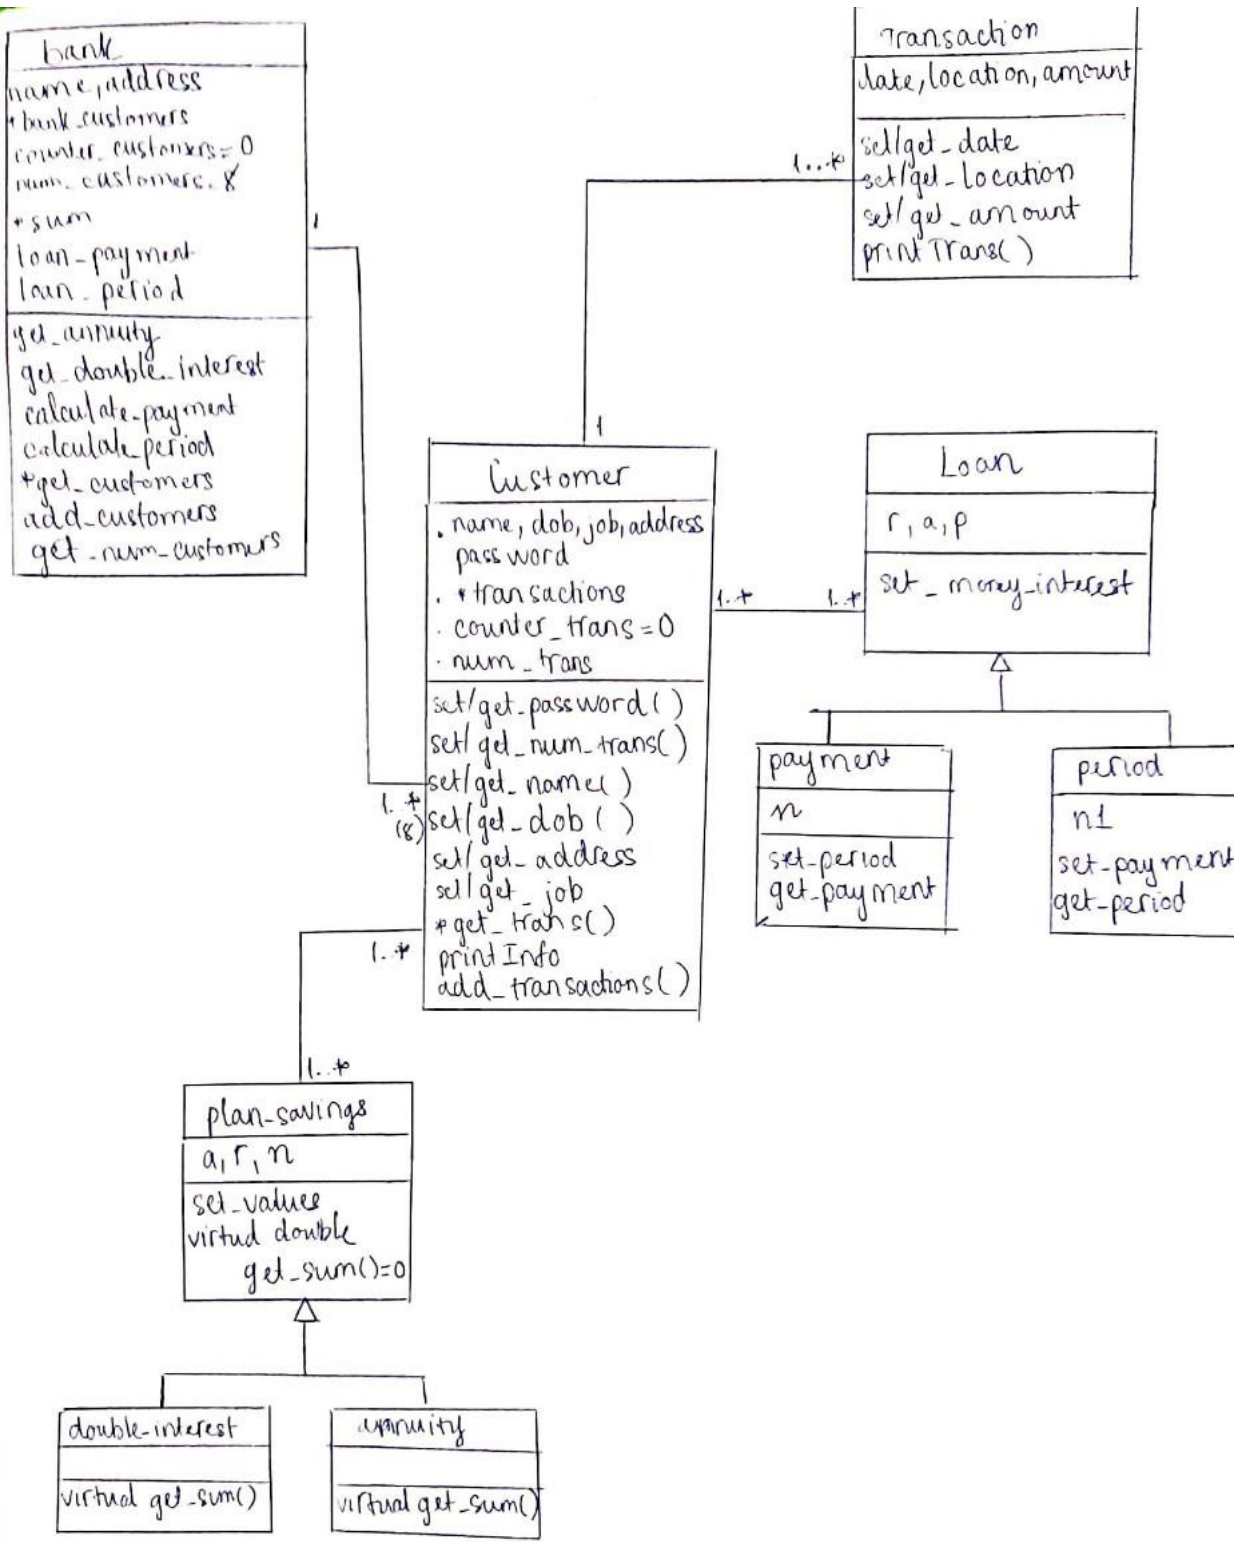 bank
name, address
*bank_customers
counter_customers=0
num_customers. 8
*sum
loan_payment
loan_period
get_annuity
get_double_interest
calculate_payment
calculate_period
*get_customers
add_customers
get_num_customers
1
1..*
(8)
Transaction
date, location, amount
set/get_date
set/get_location
set/get_amount
printTrans()
1...*
1
Customer
. name, dob, job, address
password
. *transactions
. counter_trans=0
. num_trans
set/get_password()
set/get_num_trans()
set/get_name()
set/get_dob()
set/get_address
set/get_job
*get_trans()
printInfo
add_transactions()
1..*
1..*
Loan
r, a, p
set_money_interest
payment
n
set-period
get-payment
period
n1
set-payment
get-period
1..*
1..*
plan-savings
a, r, n
set_values
virtud double
get_sum()=0
double-interest
virtual get_sum()
annuity
virtual get_sum()